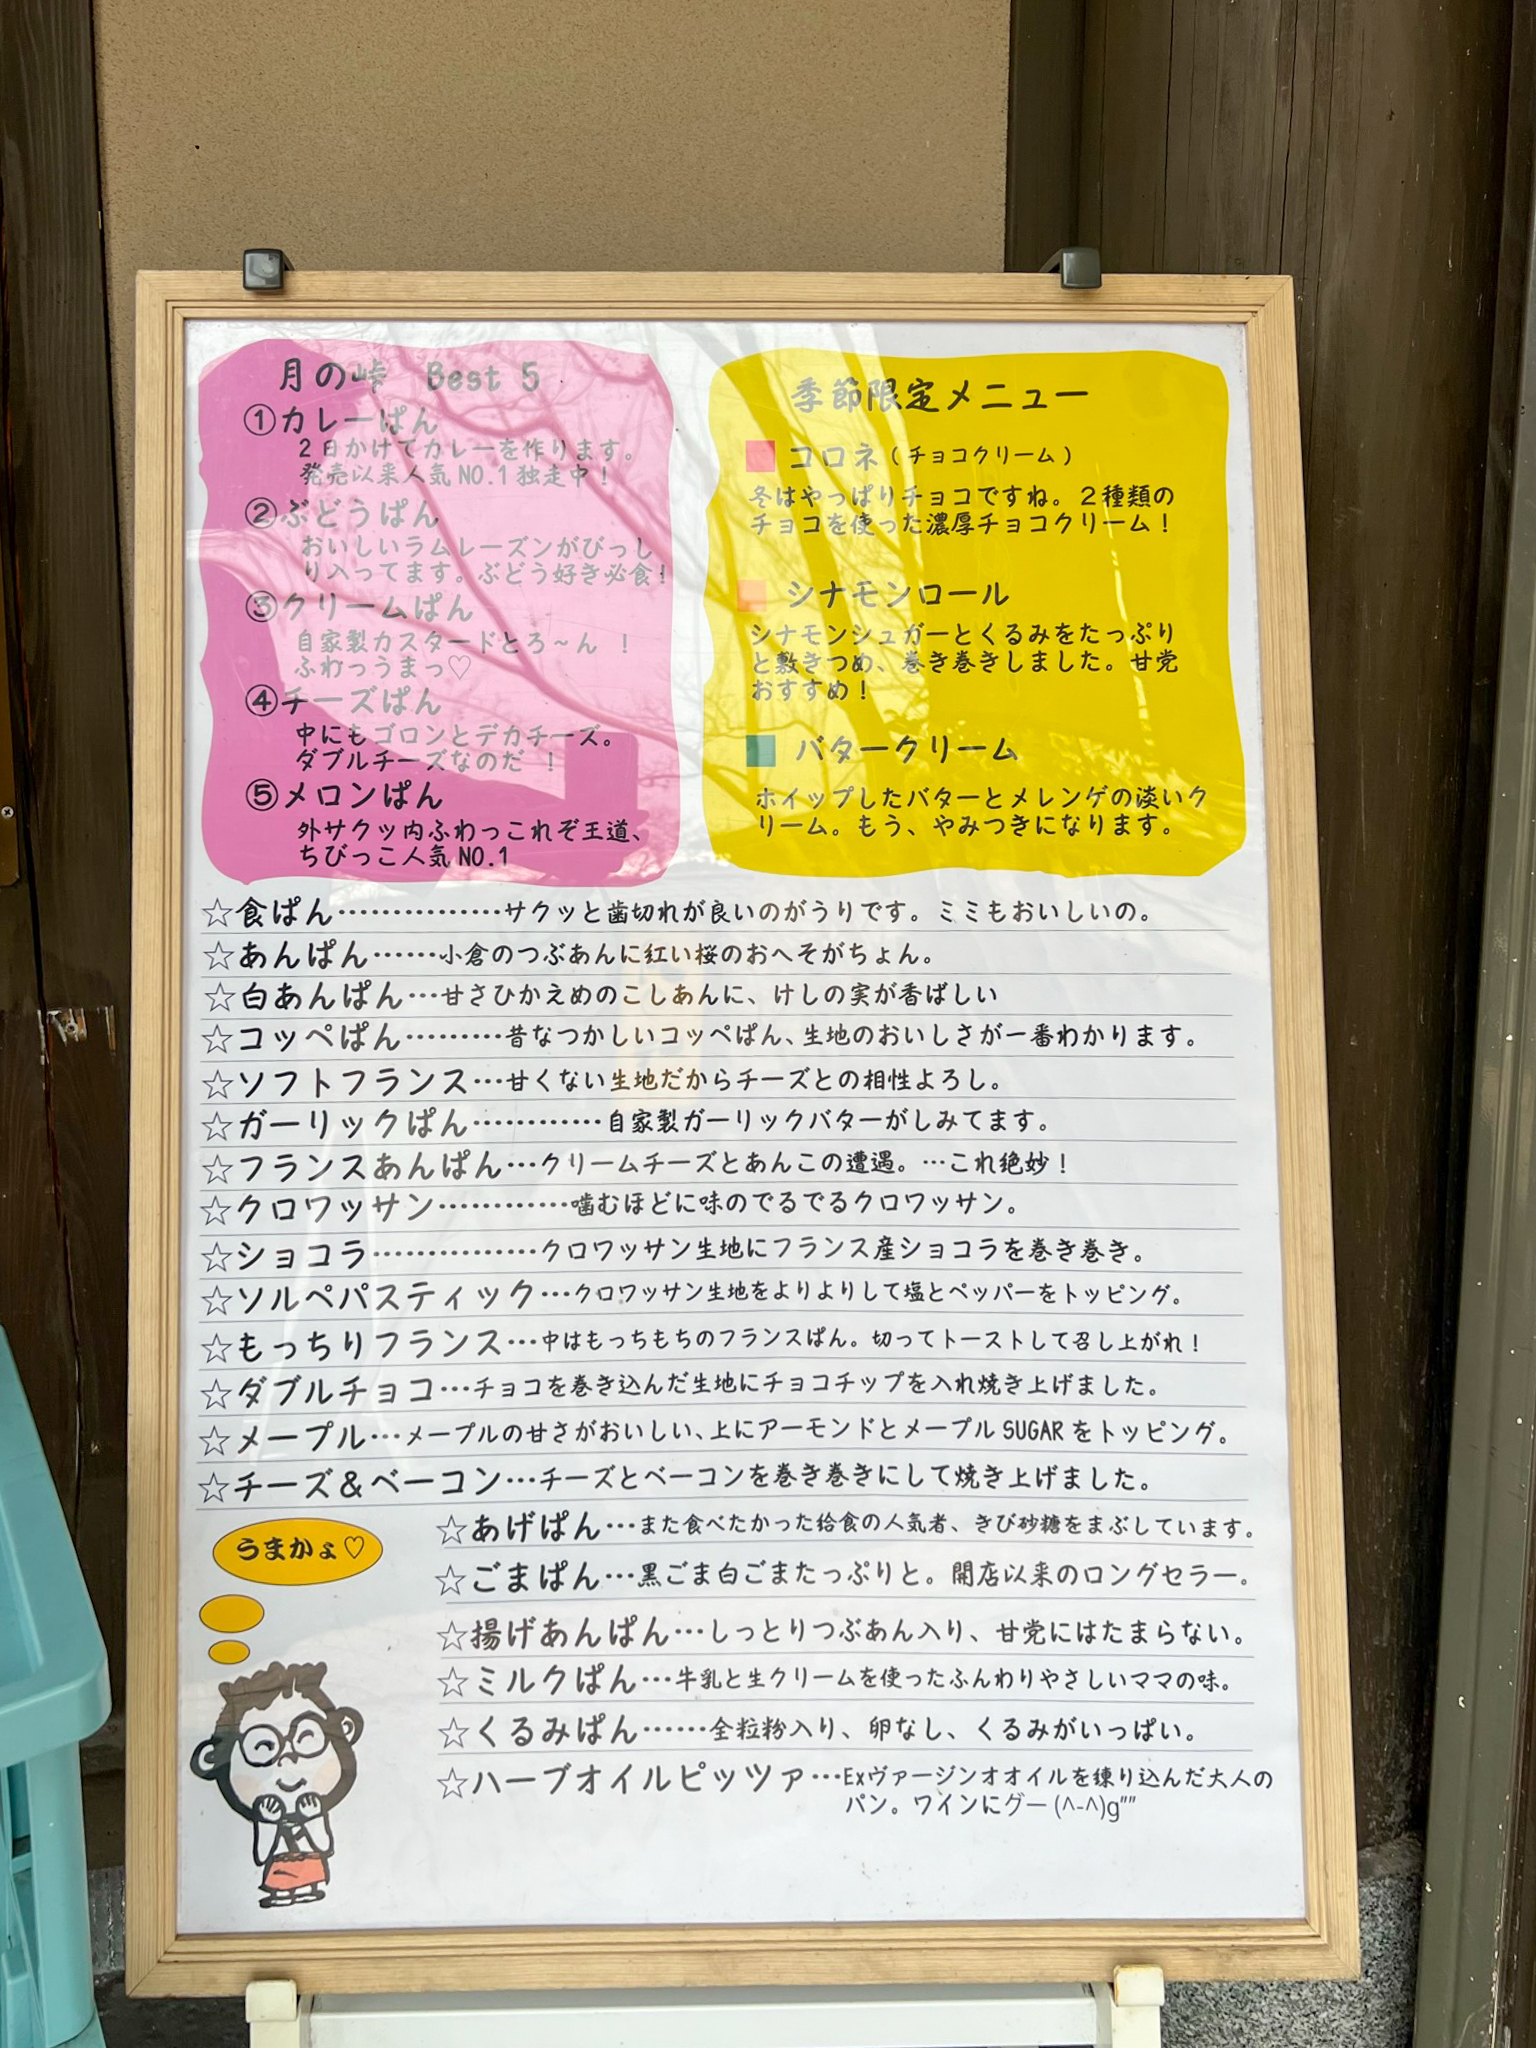 月の峠　Best 5
①カレーぱん
２日かけてカレーを作ります。
発売以来人気NO.1独走中！
②ぶどうぱん
おいしいラムレーズンがびっし
り入ってます。ぶどう好き必食！
③クリームぱん
自家製カスタードとろ～ん　！
ふわっうまっ♡
④チーズぱん
中にもゴロンとデカチーズ。
ダブルチーズなのだ　！
⑤メロンぱん
外サクッ内ふわっこれぞ王道、
ちびっこ人気NO.1
季節限定メニュー
コロネ（チョコクリーム）
冬はやっぱりチョコですね。２種類の
チョコを使った濃厚チョコクリーム！
シナモンロール
シナモンシュガーとくるみをたっぷり
と敷きつめ、巻き巻きしました。甘党
おすすめ！
バタークリーム
ホイップしたバターとメレンゲの淡いク
リーム。もう、やみつきになります。
☆食ぱん……………サクッと歯切れが良いのがうりです。ミミもおいしいの。
☆あんぱん……小倉のつぶあんに紅い桜のおへそがちょん。
☆白あんぱん…甘さひかえめのこしあんに、けしの実が香ばしい
☆コッペぱん………昔なつかしいコッペぱん、生地のおいしさが一番わかります。
☆ソフトフランス…甘くない生地だからチーズとの相性よろし。
☆ガーリックぱん…………自家製ガーリックバターがしみてます。
☆フランスあんぱん…クリームチーズとあんこの遭遇。…これ絶妙！
☆クロワッサン…………噛むほどに味のでるでるクロワッサン。
☆ショコラ……………クロワッサン生地にフランス産ショコラを巻き巻き。
☆ソルペパスティック…クロワッサン生地をよりよりして塩とペッパーをトッピング。
☆もっちりフランス…中はもっちもちのフランスぱん。切ってトーストして召し上がれ！
☆ダブルチョコ…チョコを巻き込んだ生地にチョコチップを入れ焼き上げました。
☆メープル…メープルの甘さがおいしい、上にアーモンドとメープルSUGARをトッピング。
☆チーズ＆ベーコン…チーズとベーコンを巻き巻きにして焼き上げました。
☆あげぱん…また食べたかった給食の人気者、きび砂糖をまぶしています。
うまかょ♡
☆ごまぱん…黒ごま白ごまたっぷりと。開店以来のロングセラー。
☆揚げあんぱん…しっとりつぶあん入り、甘党にはたまらない。
☆ミルクぱん…牛乳と生クリームを使ったふんわりやさしいママの味。
☆くるみぱん……全粒粉入り、卵なし、くるみがいっぱい。
☆ハーブオイルピッツァ…Exヴァージンオオイルを練り込んだ大人の
パン。ワインにグー(^-^)g""